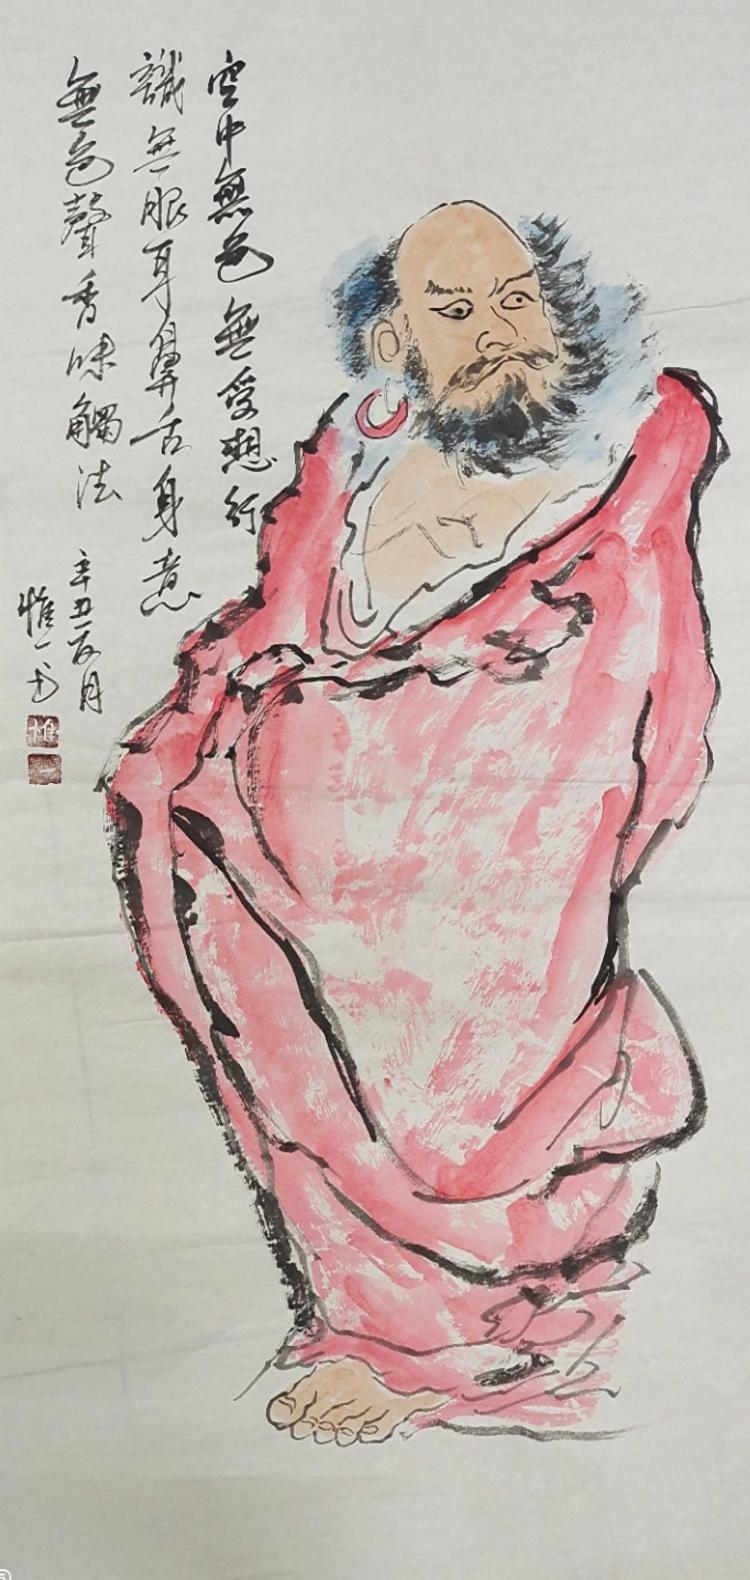 空中無色無受想行
識無眼耳鼻舌身意
無色聲香味觸法
辛丑一夜月
惟一书
惟一